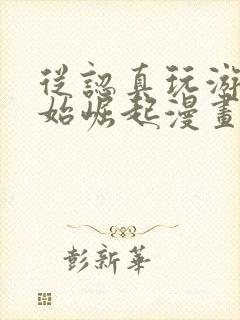 從認真玩游
始崛起漫畫
彭新華